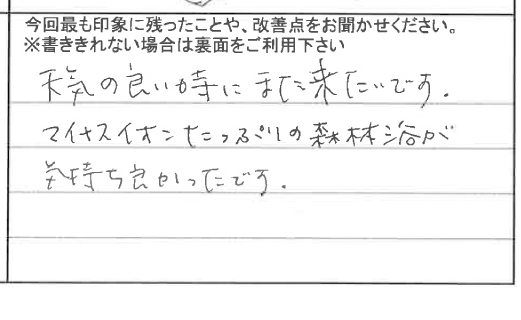 今回最も印象に残ったことや、改善点をお聞かせください。
※書ききれない場合は裏面をご利用下さい
天気の良い時にまた来たいです.
マイナスイオンたっぷりの森林浴が
気持ち良かったです.